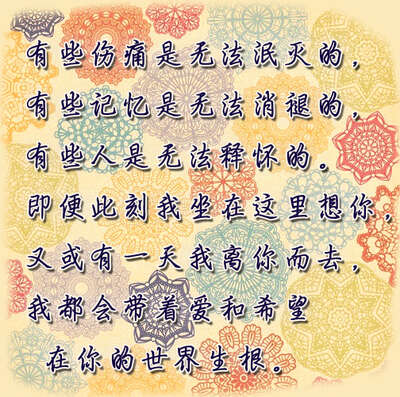 有些伤痛是无法泯灭的，
有些记忆是无法消褪的，
有些人是无法释怀的。
即便此刻我坐在这里想你，
又或有一天我离你而去，
我都会带着爱和希望
在你的世界生根。